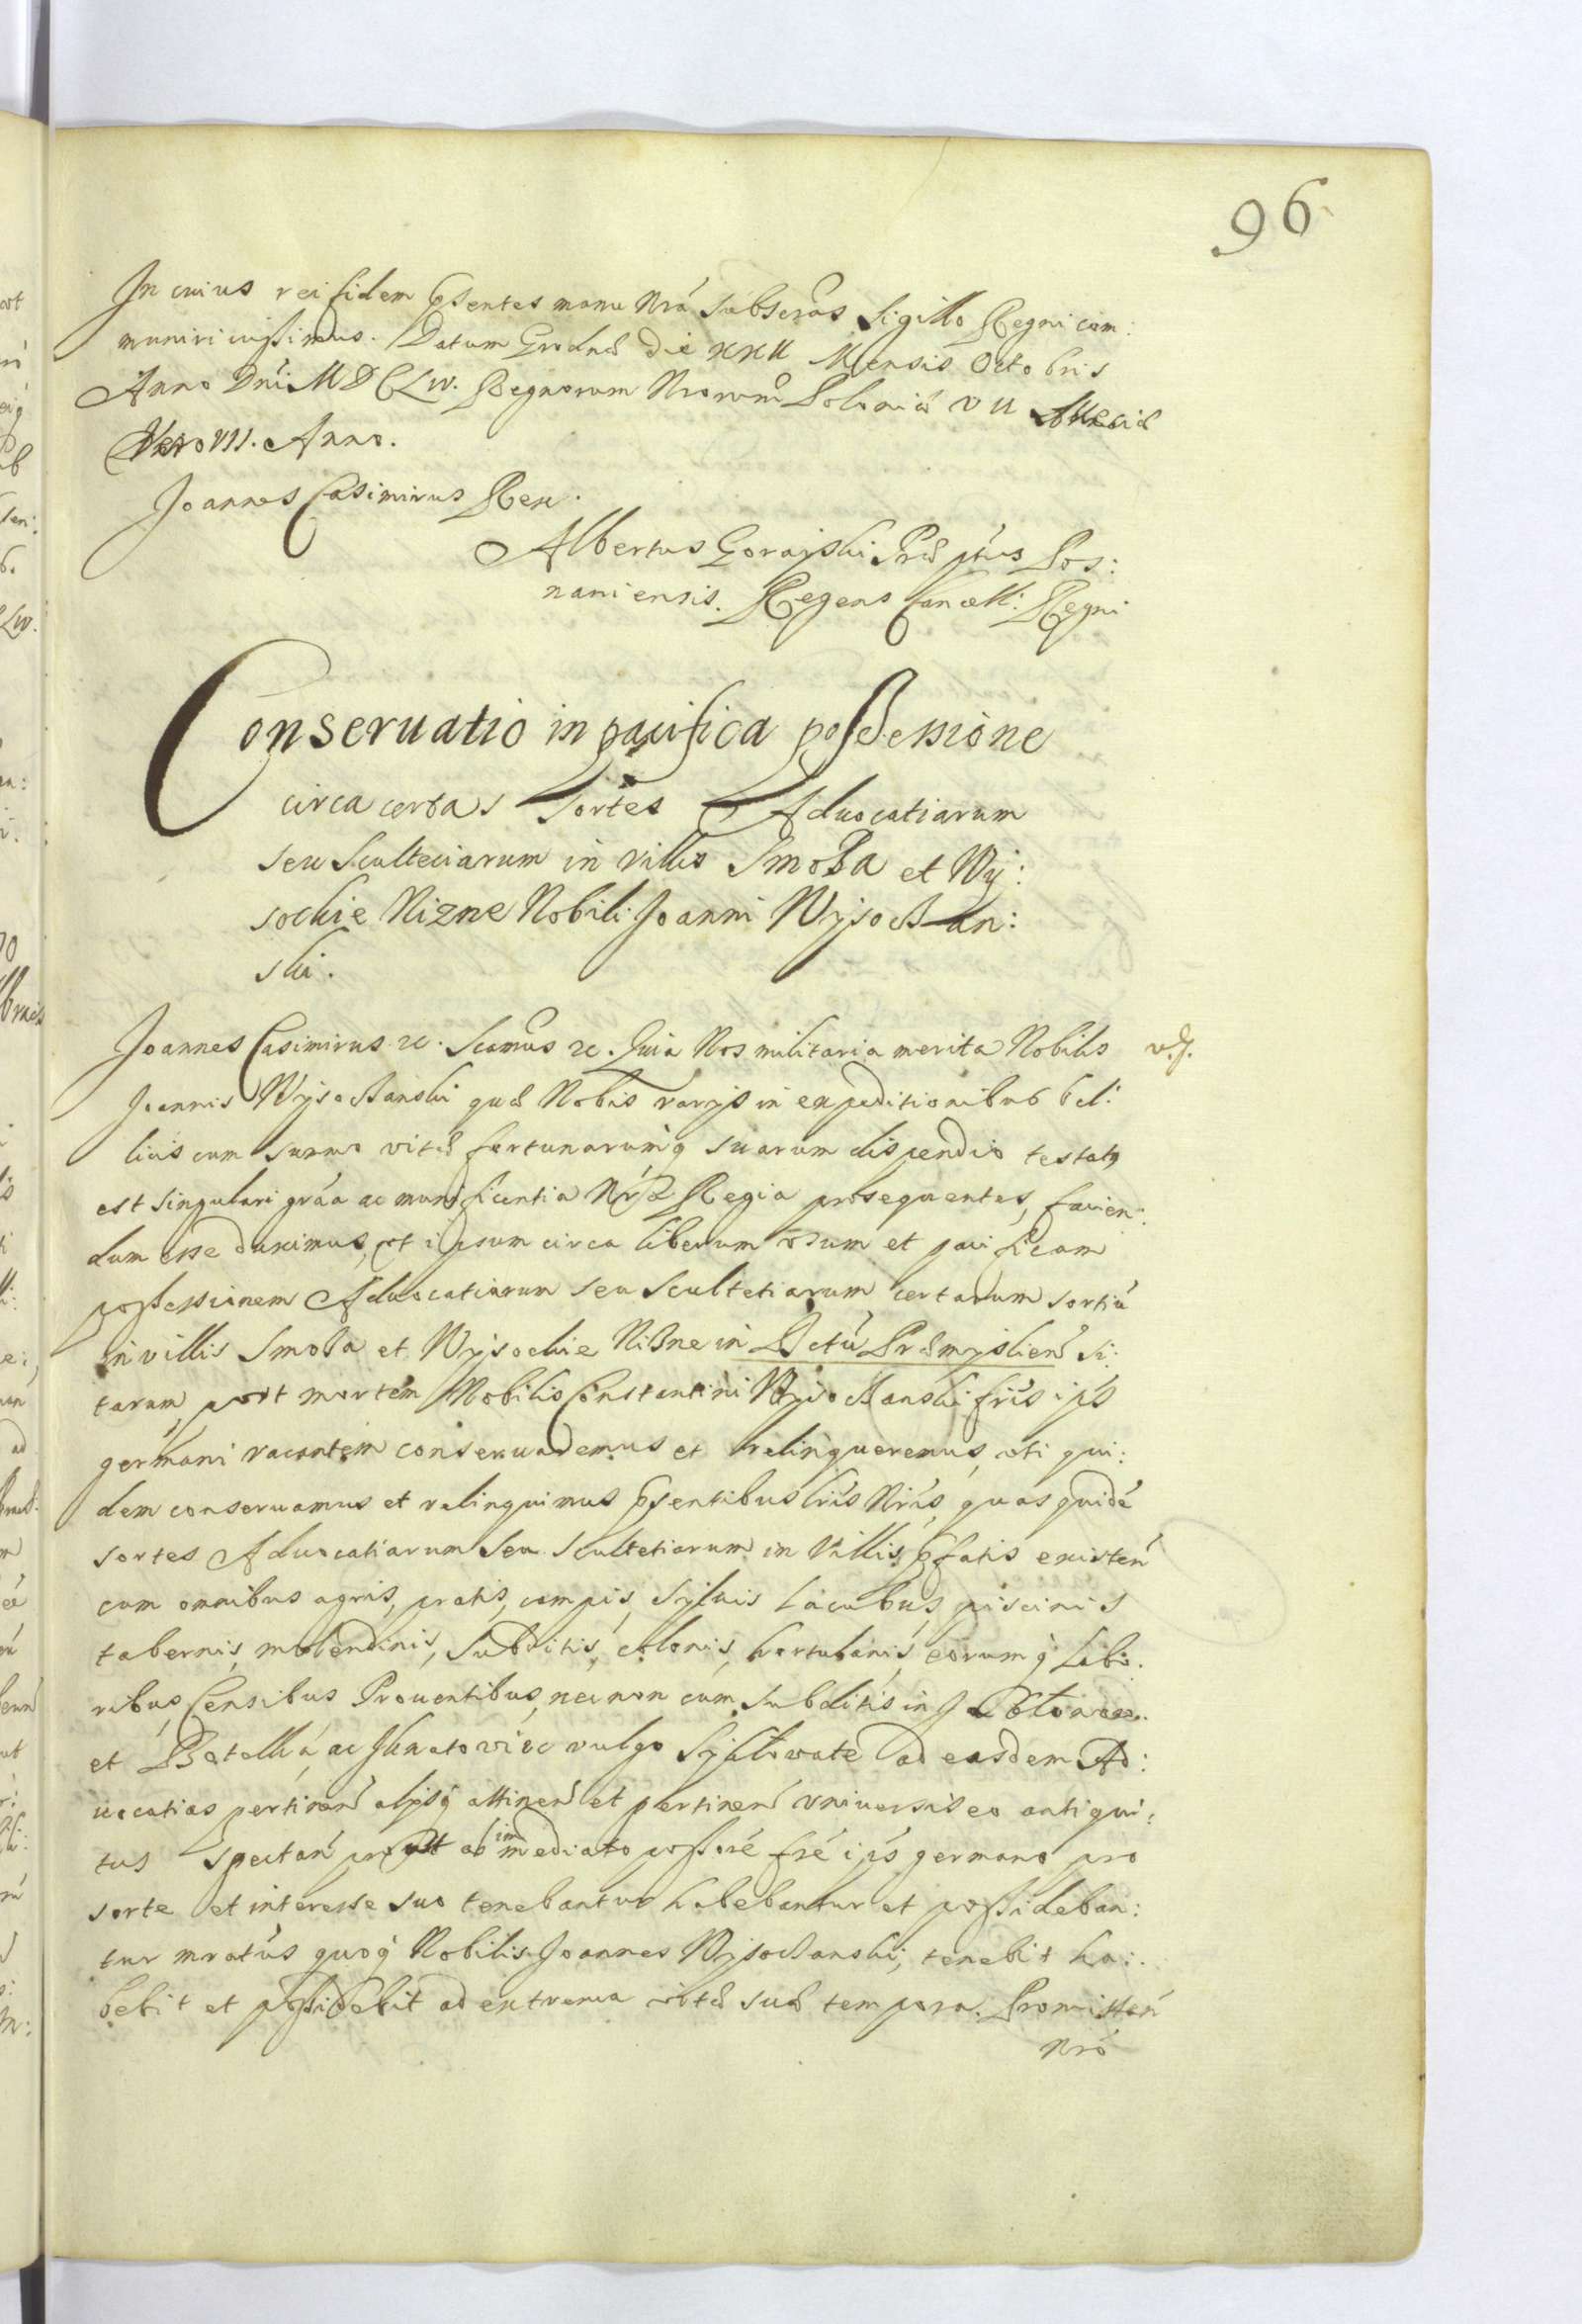 96
In cuius rei fidem Pſentes manu Nrá Subscras Sigillo Regni com:
muniri iussimus. Datum Grodnæ Die XXII Mensis Octobris
Anno Dni MDCLIV. Regnorum Nrorum Poloniæ VII Sueciæ
Vero VII. Anno.
Joannes Casimirus Rex.
Albertus Gorayski Præptus Pos:
naniensis. Regens Cancell: Regni
Conseruatio in pacifica possessione
circa certas Sortes Aduocatiarum
seu Scultetiarum in villis Smolna et Wy:
sockie Nizne Nobili Joanni Wysoczan:
ski.
Joannes Casimirus &c. Scamus &c. Quia Nos militaria merita Nobilis v.s.
Joannis Wysoczanski quæ Nobis varijs in expeditionibus bel:
licis cum summo vitæ fortunarumq suarum dispendio testatq
est singulari gráa ac munificentia Nrá Regia prosequentes, facien:
dum esse duximus, vt ipsum circa liberum vsum et pacificam
possessionem Aduocatiarum seu Scultetiarum certarum sortiú
in villis Smolna et Wysockie Nizne in Dctú Præmyslień si:
tarum, post mortem Nobilis Constantini Wysoczanski fris ipś
germani vacantem conseruaremus et relinqueremus, vti qui:
dem conseruamus et relinquimus Pſentibus lris Nris, quas quidé
sortes Aduocatiarum seu Scultetiarum in Villis Pfatis existeń
cum omnibus agris, pratis, campis, syluis lacubus, piscinis
tabernis, molendinis, Subditis, colonis, hortulanis, eorumq labo:
ribus, Censibus Prouentibus, necnon cum subditis in
et ac vulgo ad easdem Ad:
uocatias pertineń alijsq attineń et pertineń vniuersis eo antiqui:
tus spectań prout ab immediato possore fre ipś germano pro
sorte et interesse suo tenebantur habebantur et possideban:
tur mratus quoq Nobilis Joannes Wysoczanski, tenebit ha:
bebit et possidebit ad extrema vitæ suæ tempora. Promitteń
Nró